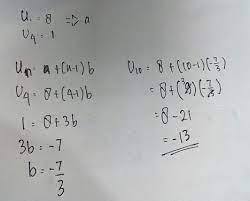 U₁ = 8 => a
U₄ = 1
Uₙ = a + (n-1) b
U₄ = 8 + (4-1) b
1 = 8 + 3b
3b = -7
b = -7/3
U₁₀ = 8 + (10-1) (-7/3)
= 8 + (9) (-7/3)
= 8 - 21
= -13